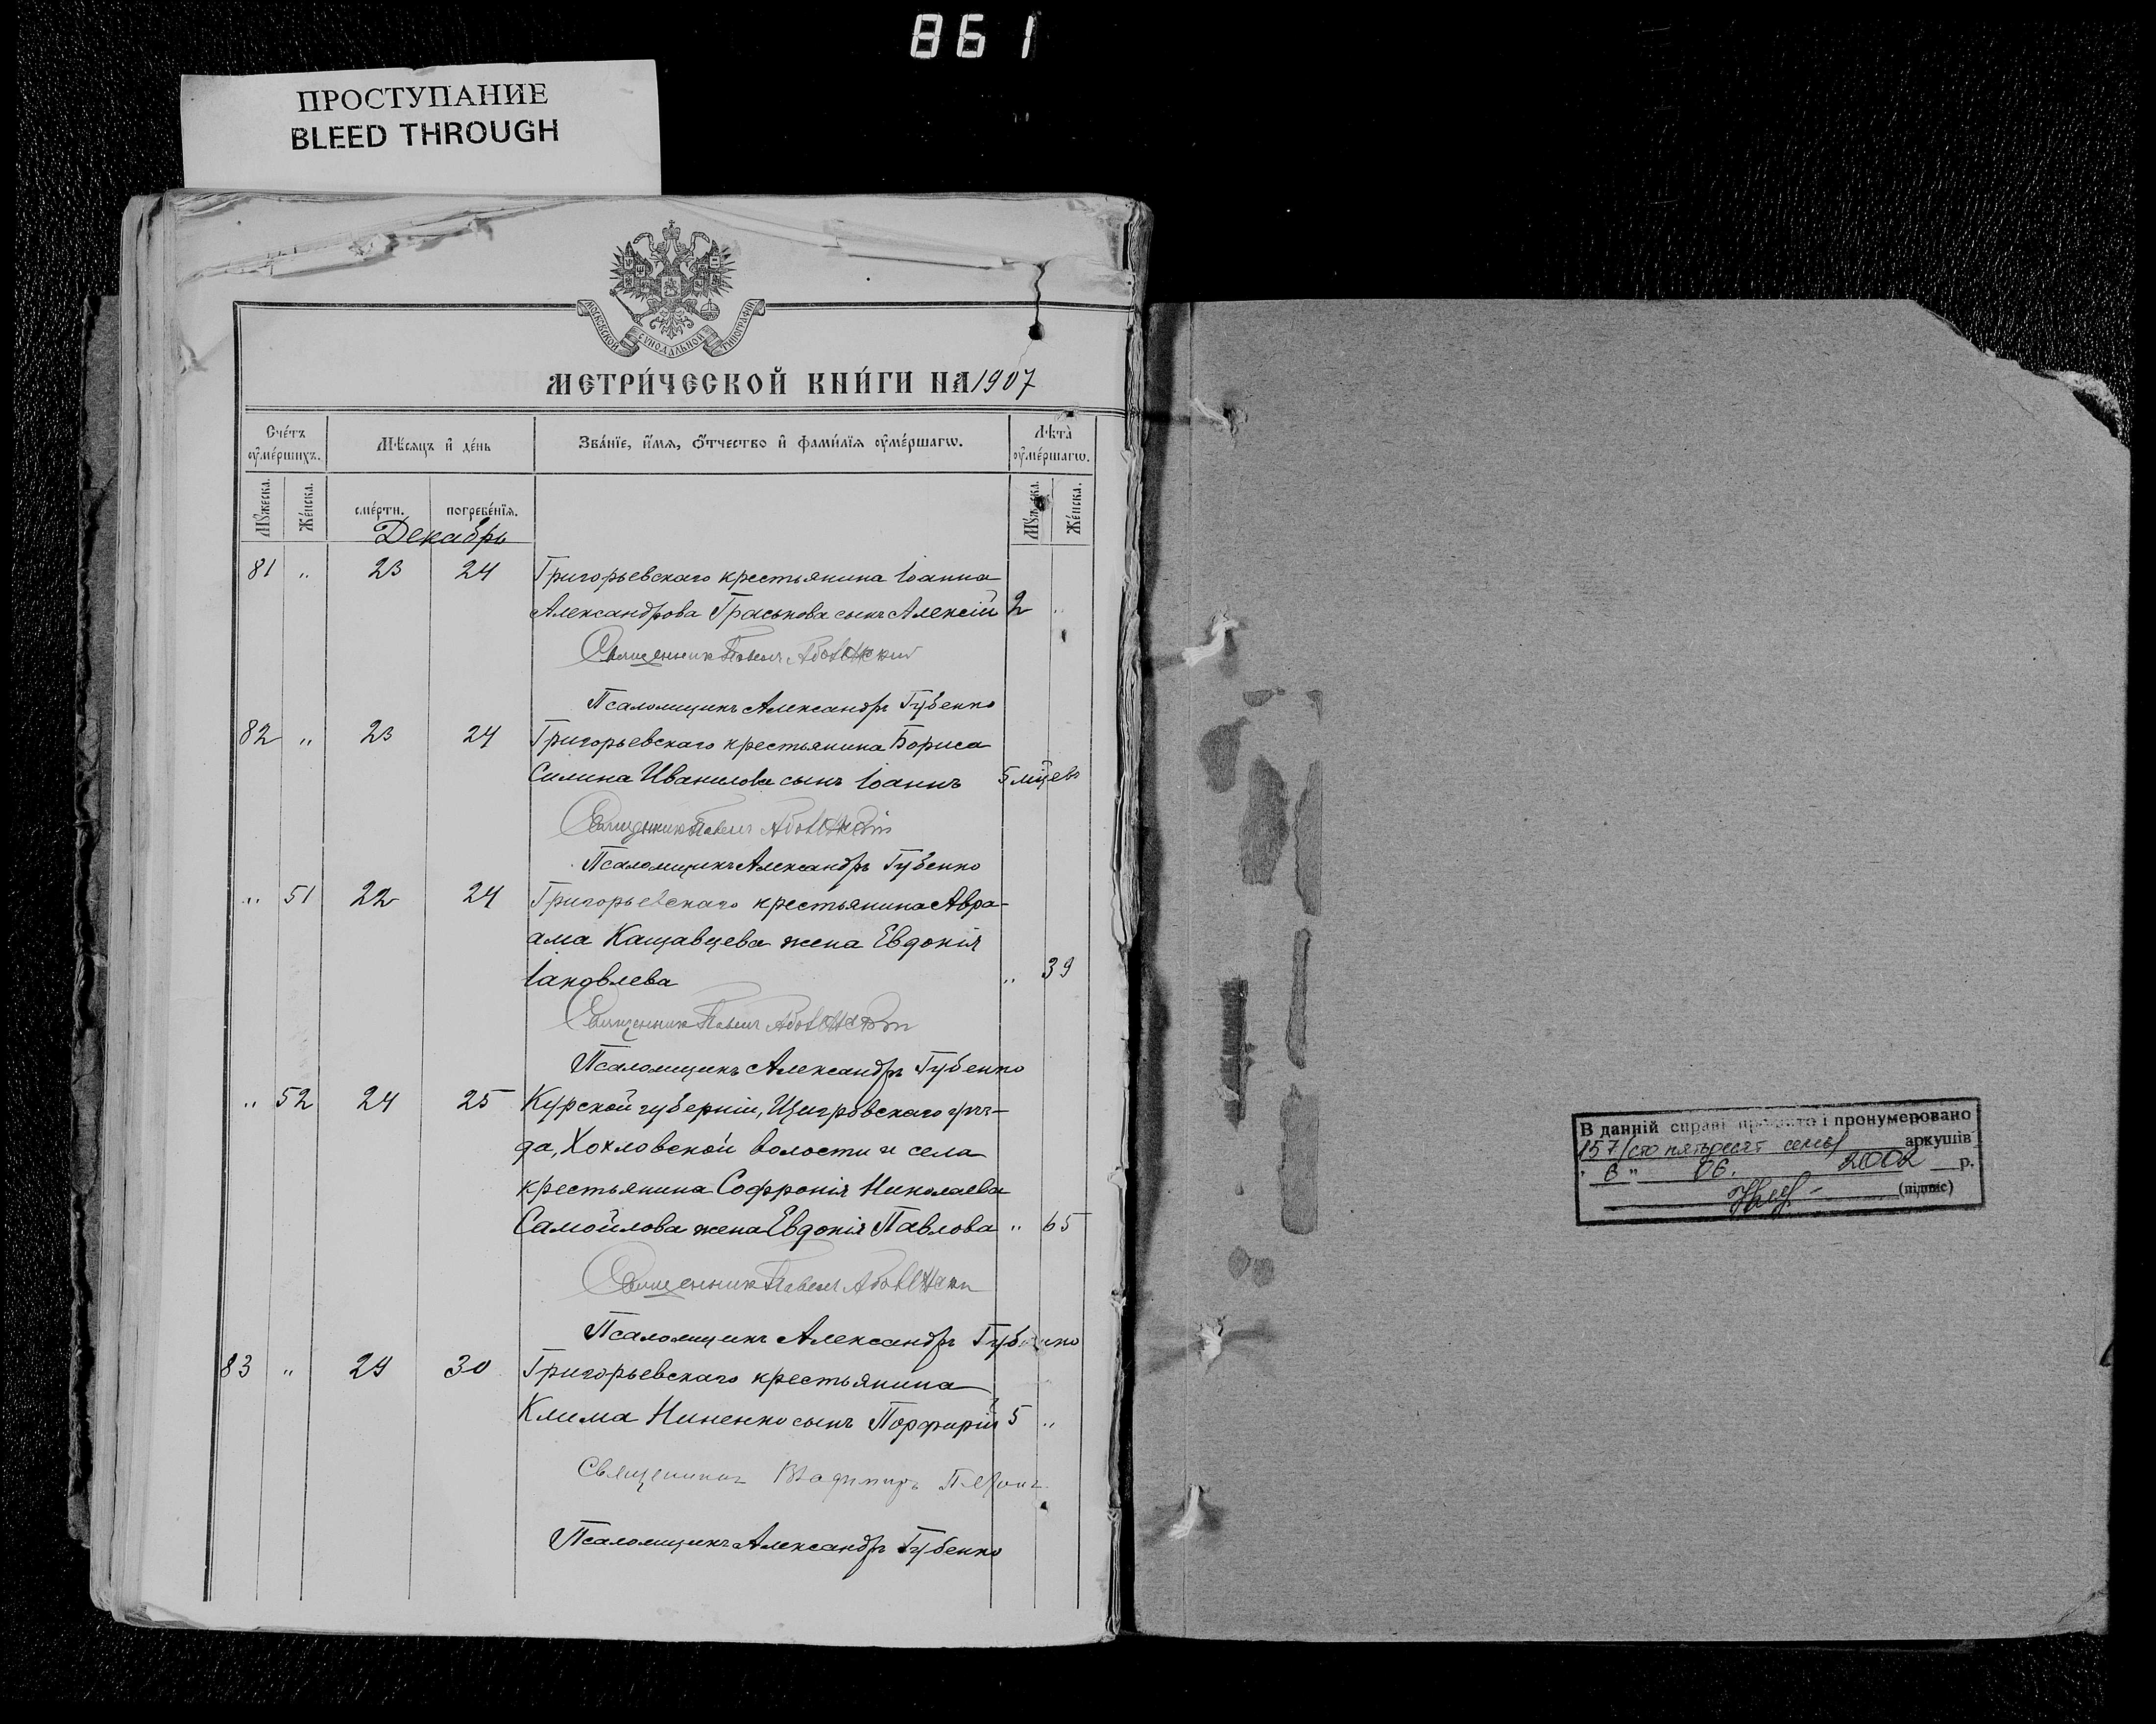 861
ПРОСТУПАНИЕ
BLEED THROUGH
МОСКОВСКОЙ СѴНОДАЛЬНОЙ ТИПОГРАФІИ
МЕТРИ́ЧЕСКОЙ КНИ́ГИ НА 1907
Сче́тъ ᲂу҆ме́ршихъ.
Мѣ́сяцъ и҆ де́нь
Зва́нїе, и҆́мя, ѻ҆́тчество и҆ фами́лїя ᲂу҆ме́ршагѡ.
Лѣта̀ ᲂу҆ме́ршагѡ.
Мꙋ́жеска.
Же́нска.
сме́рти.
погребе́нїѧ.
Мꙋ́жеска.
Же́нска.
Декабрь
81 „ 23 24 Григорьевскаго крестьянина Іоанна
Александрова Граськова сынъ Алексій 2 „
Священникъ Павелъ
Псаломщикъ Александръ Губенко
82 „ 23 24 Григорьевскаго крестьянина Бориса
Силина Иванилова сынъ Іоаннъ 5 мцевъ
Священникъ Павелъ
Псаломщикъ Александръ Губенко
„ 51 22 24 Григорьевскаго крестьянина Авра-
ама Кащавцева жена Евдокія
Іаковлева „ 39
Священникъ Павелъ
Псаломщикъ Александръ Губенко
„ 52 24 25 Курской губерніи, Щигровскаго уѣз-
да, Хохловской волости и села
крестьянина Софронія Николаева
Самойлова жена Евдокія Павлова „ 65
Священникъ Павелъ
Псаломщикъ Александръ Губенко
83 „ 29 30 Григорьевскаго крестьянина
Клима Ниненко сынъ Порфирій 5 „
Священникъ Владимиръ
Псаломщикъ Александръ Губенко
В данній справі прошито і пронумеровано
157 (сто пятьдесят семь) аркушів
„ 6 " 06. 2002 р.
(підпис)